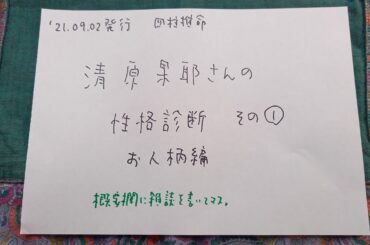 '21.09.02発行 四柱推命
清原果耶さんの
性格診断 その①
お人柄編
概要欄に雑談を書いてます。